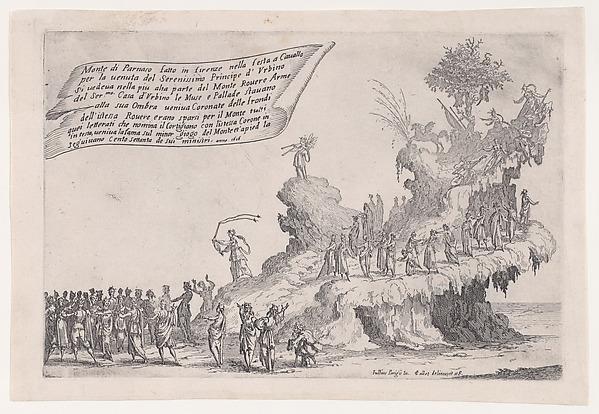 Monte di Parnaso fatto in firenze nella festa a Cauallo
per la uenuta del Serenissimo Principe d' Vrbino
Si uedeua nella piu alta parte del Monte Rouere Arme
del Ser.mo Casa d'Vrbino le Muse e Pallade stauano
alla sua Ombra ueniua Coronate delle frondi
dell'istessa Rouere erano sparsi per il Monte tutti
quei letterati che nomina il Cortigiano con listesa Corone in
testa, ueniua la fama sul minor giogo del Monte et apied la
Seguiuano Cento Settanta de sui ministri.
Iullius Parigii In. Callot delineauit et F.